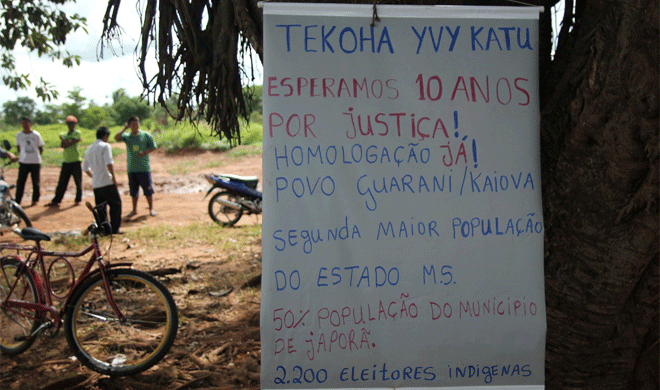 TEKOHA YVY KATU
ESPERAMOS 10 ANOS
POR JUSTIÇA!
HOMOLOGAÇÃO JÁ!
POVO GUARANI/KAIOVA
SEGUNDA MAIOR POPULAÇÃO
DO ESTADO MS.
50% POPULAÇÃO DO MUNICIPIO
DE JAPORÃ.
2.200 ELEITORES INDIGENAS